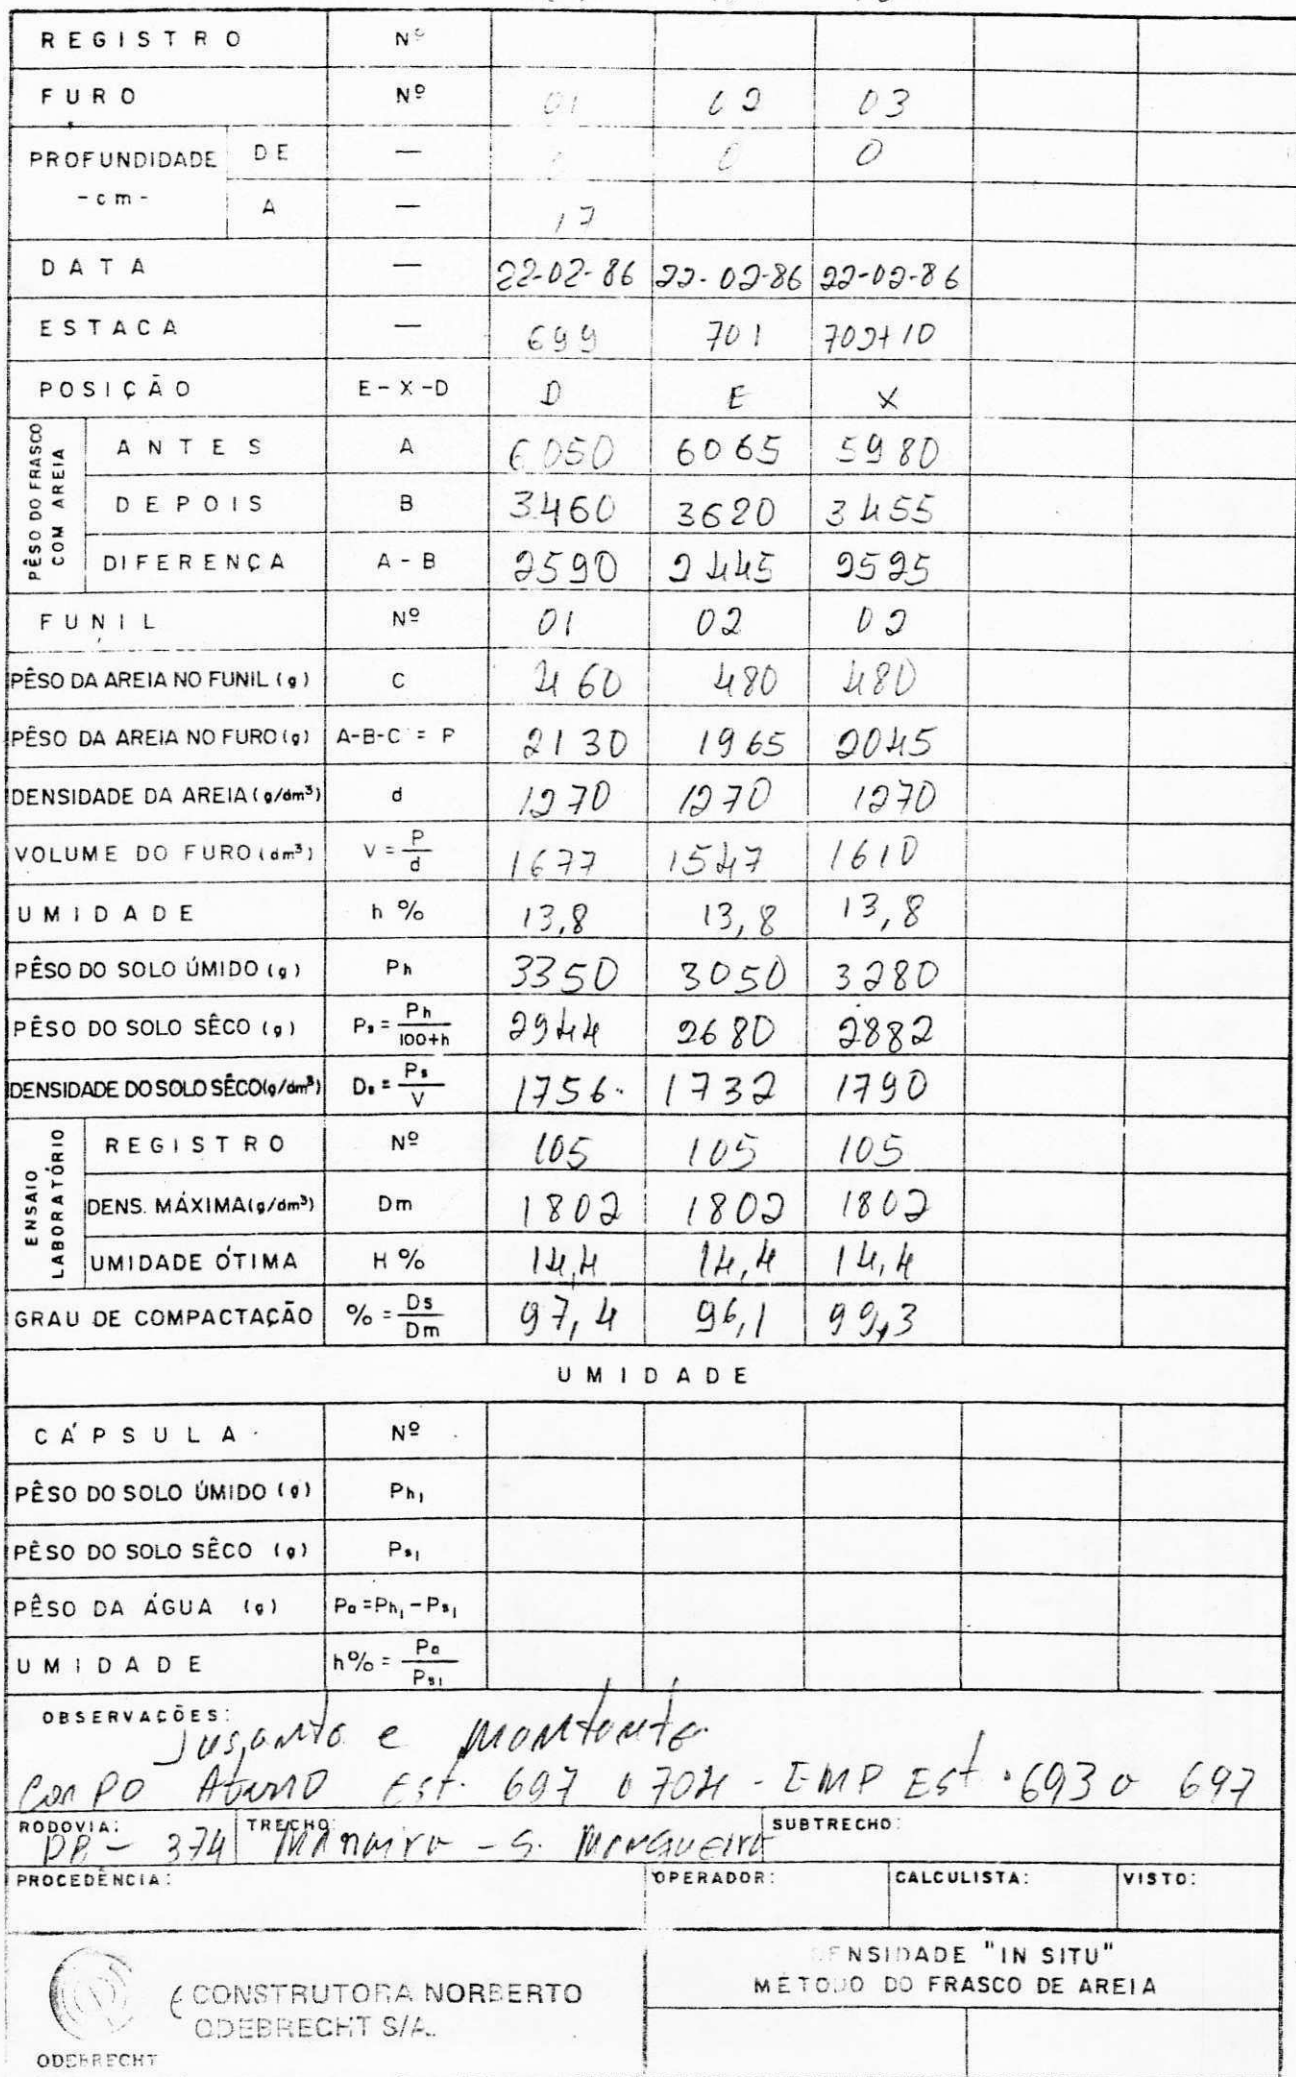 REGISTRO Nº
FURO Nº 01 02 03
PROFUNDIDADE -cm- DE — 0 0
A — 17
DATA — 22-02-86 22-02-86 22-02-86
ESTACA — 699 701 702+10
POSIÇÃO E-X-D D E X
PÊSO DO FRASCO COM AREIA
ANTES A 6050 6065 5980
DEPOIS B 3460 3620 3455
DIFERENÇA A-B 2590 2445 2525
FUNIL Nº 01 02 02
PÊSO DA AREIA NO FUNIL (g) C 460 480 480
PÊSO DA AREIA NO FURO (g) A-B-C = P 2130 1965 2045
DENSIDADE DA AREIA (g/dm³) d 1270 1270 1270
VOLUME DO FURO (dm³) V = P/d 1677 1547 1610
UMIDADE h % 13,8 13,8 13,8
PÊSO DO SOLO ÚMIDO (g) Ph 3350 3050 3280
PÊSO DO SOLO SÊCO (g) Ps = Ph/100+h 2944 2680 2882
DENSIDADE DO SOLO SÊCO (g/dm³) Ds = Ps/V 1756 1732 1790
ENSAIO LABORATÓRIO
REGISTRO Nº 105 105 105
DENS. MÁXIMA (g/dm³) Dm 1802 1802 1802
UMIDADE ÓTIMA H % 14,4 14,4 14,4
GRAU DE COMPACTAÇÃO % = Ds/Dm 97,4 96,1 99,3
UMIDADE
CÁPSULA Nº
PÊSO DO SOLO ÚMIDO (g) Ph₁
PÊSO DO SOLO SÊCO (g) Ps₁
PÊSO DA ÁGUA (g) Pa = Ph₁ - Ps₁
UMIDADE h% = Pa/Ps₁
OBSERVAÇÕES:
Jusante e Montante
Corpo Aterro Est. 697 a 704 - EMP Est. 693 a 697
RODOVIA: TRECHO: SUBTRECHO:
374
PROCEDÊNCIA: OPERADOR: CALCULISTA: VISTO:
CONSTRUTORA NORBERTO
ODEBRECHT S/A.
ODEBRECHT
DENSIDADE "IN SITU"
MÉTODO DO FRASCO DE AREIA